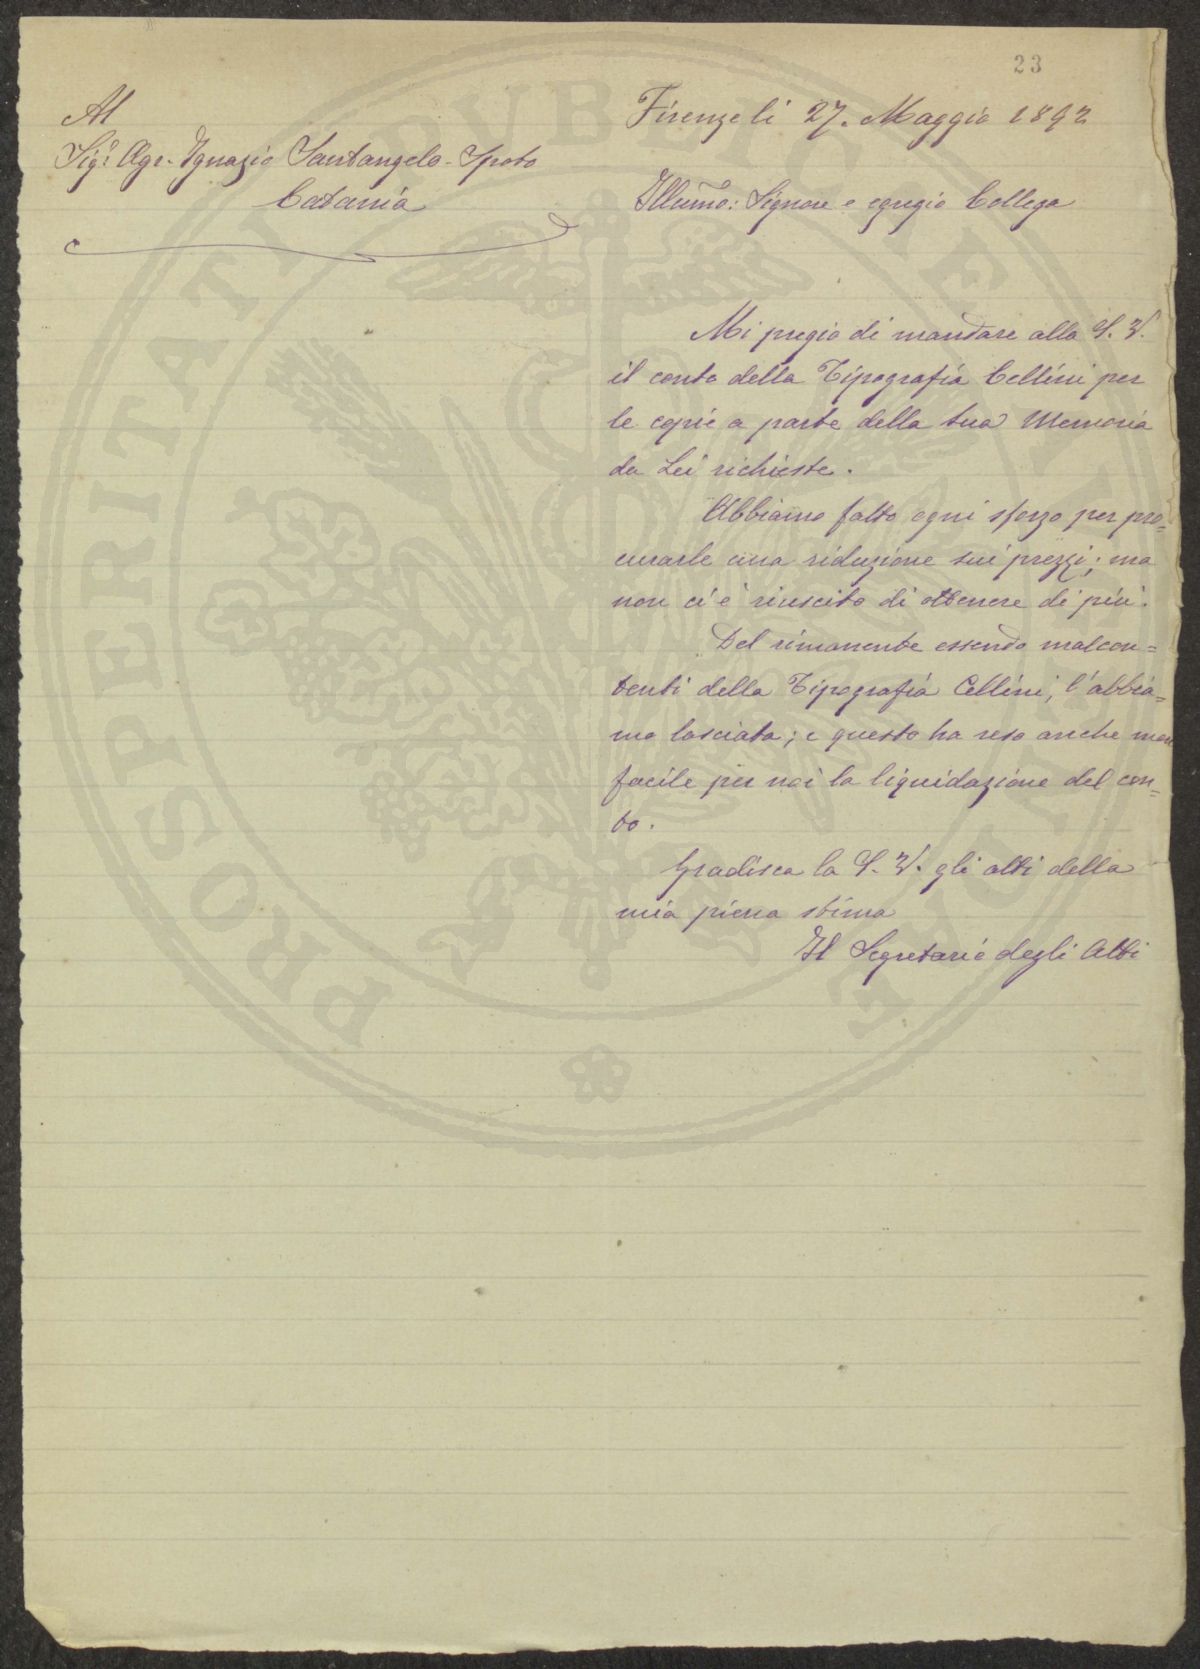 23
Al
Sigr. Agr. Ignazio Santangelo-Spoto
Catania
Firenze li 27. Maggio 1892
Illumo: Signore e egregio Collega
Mi pregio di mandare alla S. V.
il conto della Tipografia Cellini per
le copie a parte della sua Memoria
da Lei richieste.
Abbiamo fatto ogni sforzo per pro=
curarle una riduzione sui prezzi; ma
non ci è riuscito di ottenere di più.
Del rimanente essendo malcon=
tenti della Tipografia Cellini, l'abbia=
mo lasciata; e questo ha reso anche men
facile per noi la liquidazione del con=
to.
Gradisca la S. V. gli atti della
mia piena stima
Il Segretario degli Atti
PROSPERITATI PUBLICAE AUGENDAE